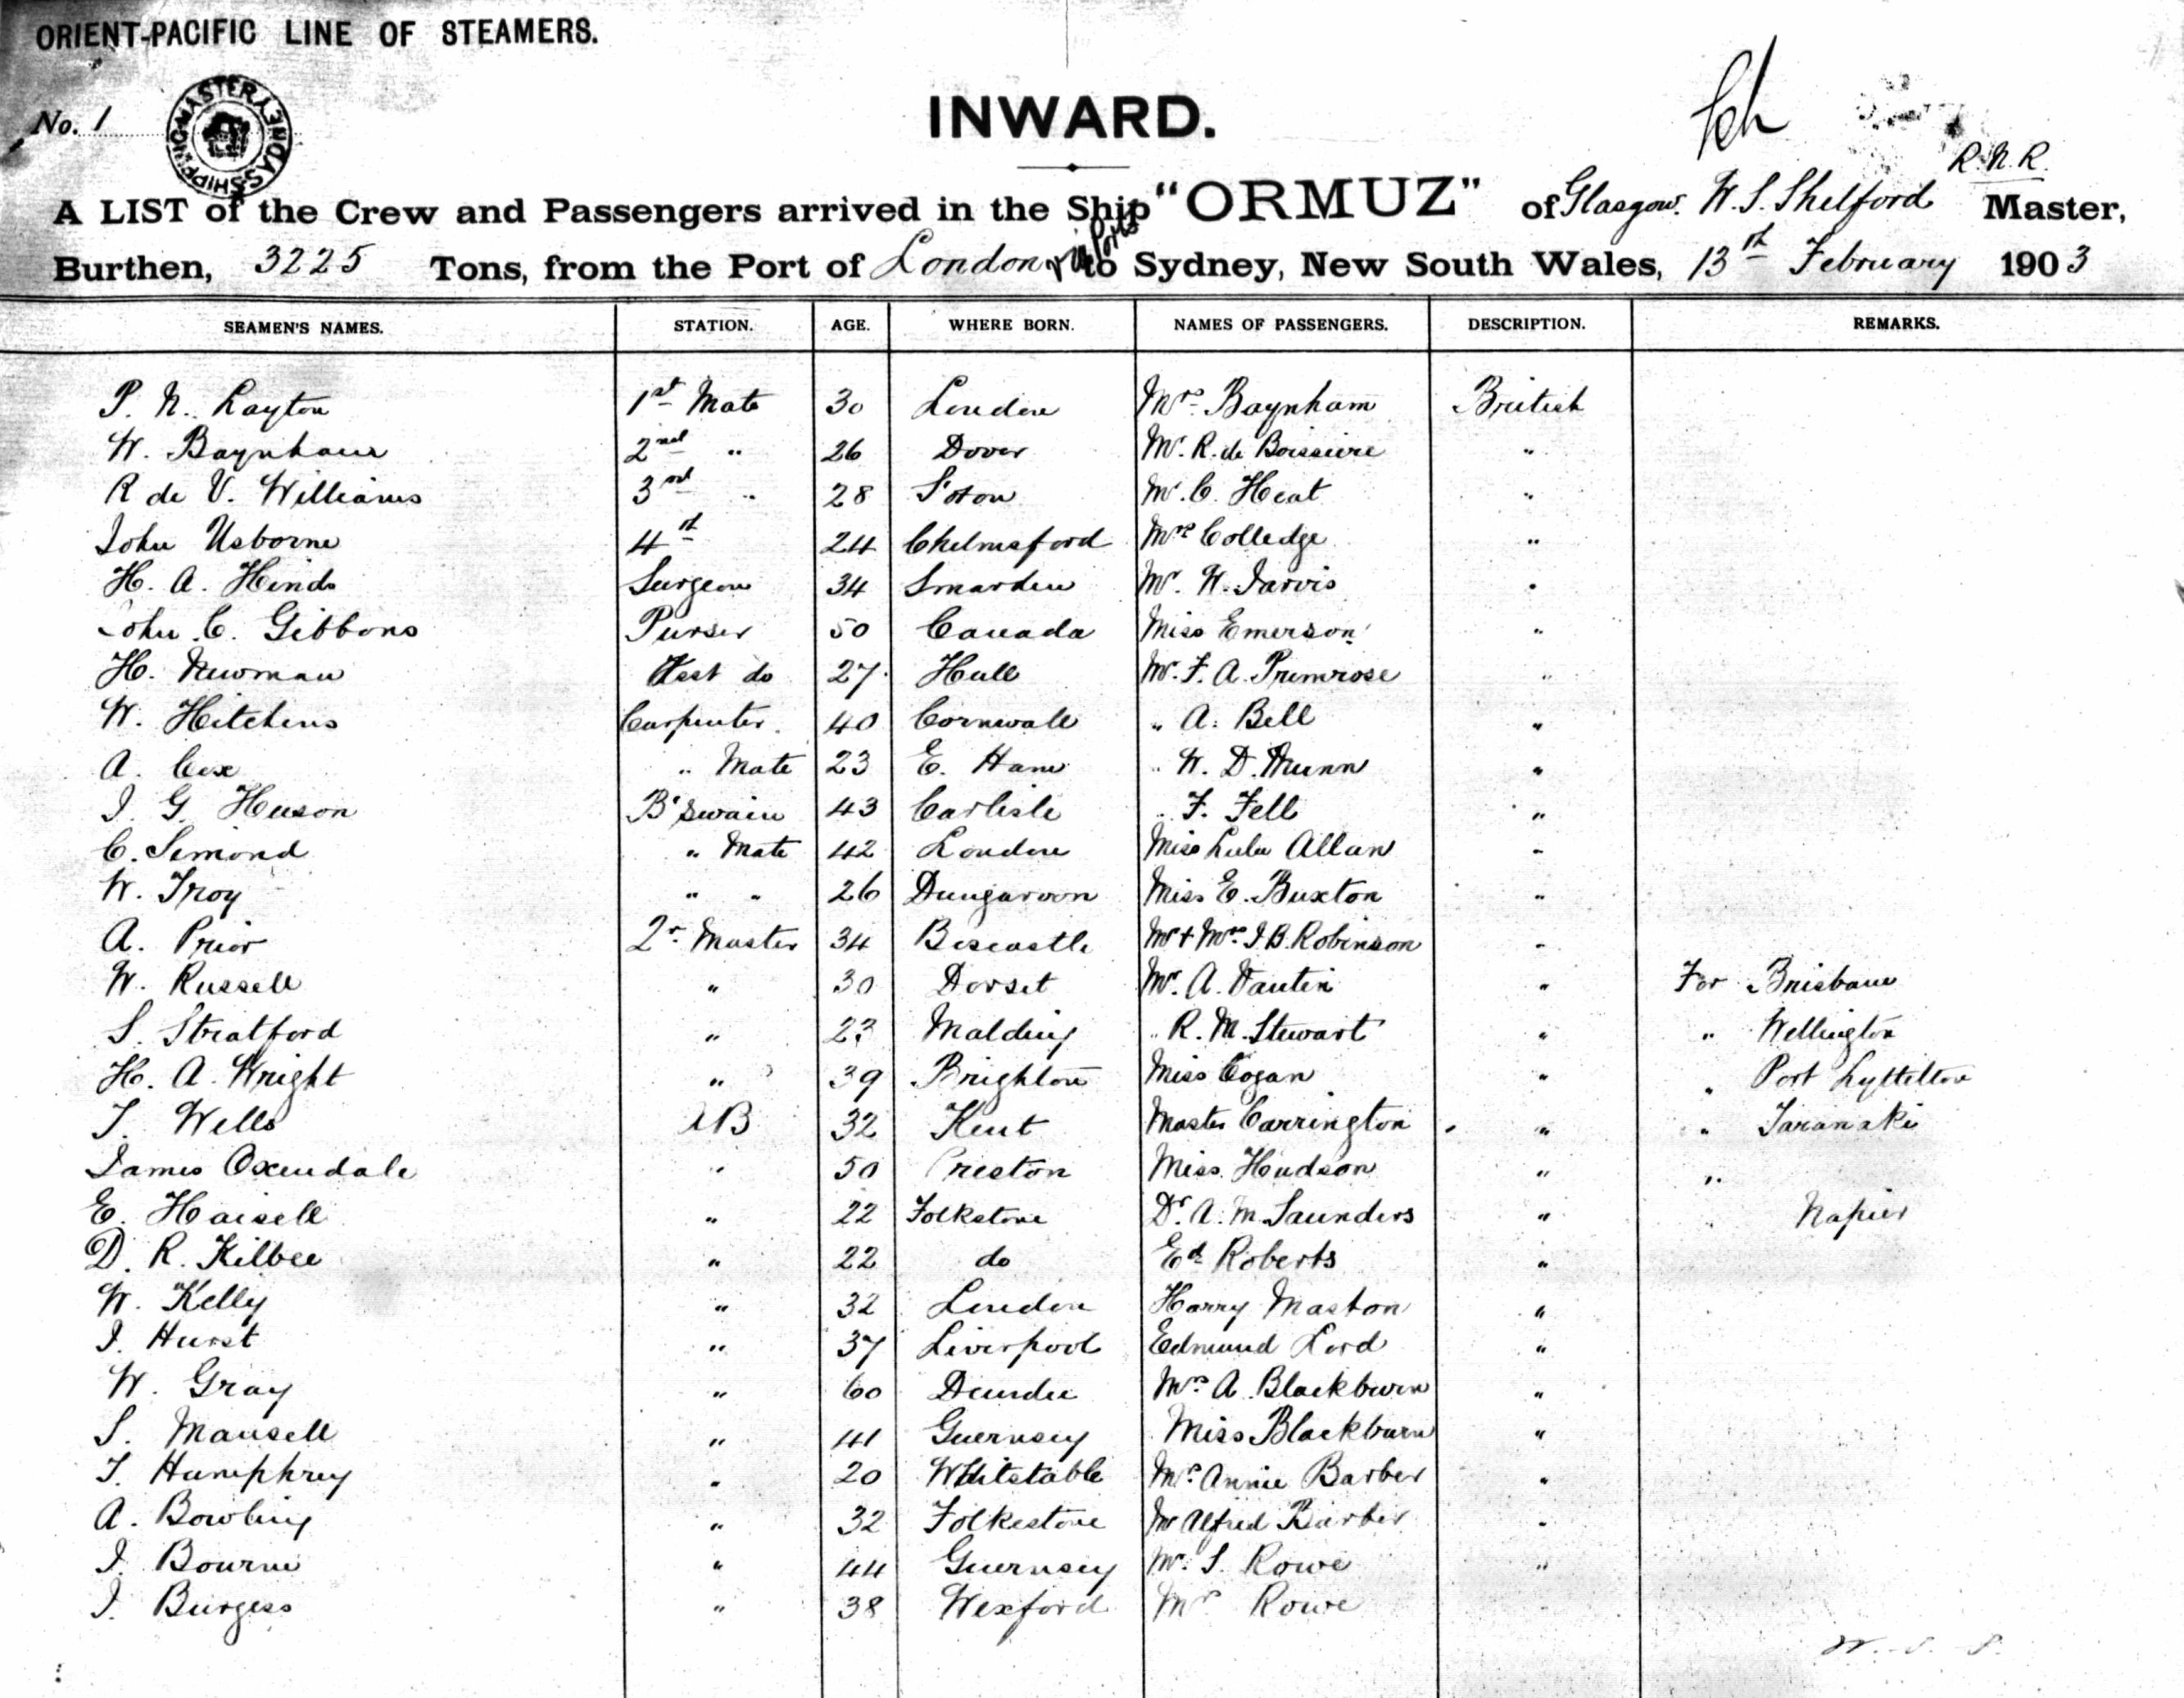 ORIENT-PACIFIC LINE OF STEAMERS.
No. 1
SHIPPING MASTER SYDNEY
INWARD.
R.N.R.
A LIST of the Crew and Passengers arrived in the Ship "ORMUZ" of Glasgow. W. S. Shelford Master,
Burthen, 3225 Tons, from the Port of London to Sydney, New South Wales, 13th February 1903
SEAMEN'S NAMES. STATION. AGE. WHERE BORN. NAMES OF PASSENGERS. DESCRIPTION. REMARKS.
P. N. Layton 1st Mate 30 London Mrs Baynham British
W. Baynham 2nd " 26 Dover Mr. R. de Boissiere "
R de V. Williams 3rd " 28 S'oton Mr. C. Heat "
John Usborne 4th 24 Chelmsford Mrs Colledge "
H. A. Hinds Surgeon 34 Smarden Mr. W. Jarvis "
John C. Gibbons Purser 50 Canada Miss Emerson "
H. Newman Asst do 27 Hull Mr. F. A. Primrose "
W. Hitchins Carpenter. 40 Cornwall " A. Bell "
A. Cox " Mate 23 E. Ham " W. D. Munn "
J. G. Huson B'swain 43 Carlisle " F. Fell "
C. Simond " Mate 42 London Miss Lulu Allan "
W. Troy " " 26 Dungarvon Miss E. Buxton "
A. Prior 2r. Master 34 Boscastle Mr + Mrs J. B. Robinson "
W. Russell " 30 Dorset Mr. A. Vautin " For Brisbane
S. Stratford " 23 Malding " R. M. Stewart " " Wellington
H. A. Wright " 39 Brighton Miss Cogan " " Port Lyttelton
T. Wells AB 32 Kent Master Carrington " " Taranaki
James Oxendale " 50 Preston Miss Hudson " "
E. Haisell " 22 Folkstone Dr. A. M. Saunders " " Napier
D. R. Kilbee " 22 do Ed. Roberts "
W. Kelly " 32 London Harry Maston "
J. Hurst " 37 Liverpool Edmund Lord "
W. Gray " 60 Dundee Mrs A. Blackburn "
S. Mansell " 41 Guernsey Miss Blackburn "
T. Humphrey " 20 Whitstable Mrs Annie Barber "
A. Bowling " 32 Folkestone Mr Alfred Barber "
J. Bourne " 44 Guernsey Mr. S. Rowe "
J. Burgess " 38 Wexford Mrs Rowe
W. S. S.